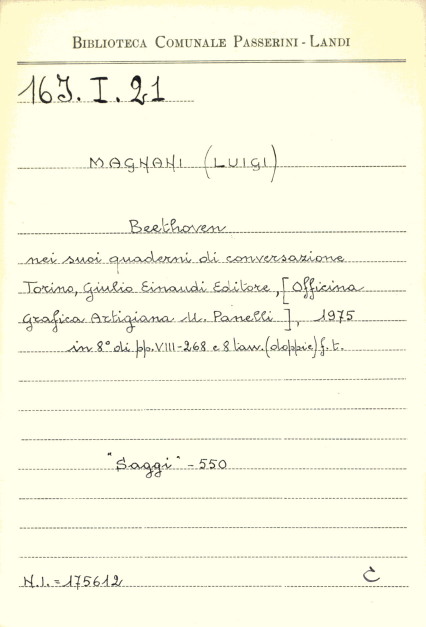 BIBLIOTECA COMUNALE PASSERINI - LANDI
16J. I. 21
MAGNANI (LUIGI)
Beethoven
nei suoi quaderni di conversazione
Torino, Giulio Einaudi Editore, [Officina
Grafica Artigiana U. Panelli], 1975
in 8° di pp. VIII-268 e 8 tav. (doppie) f. t.
"Saggi" - 550
N.I. = 175612
C